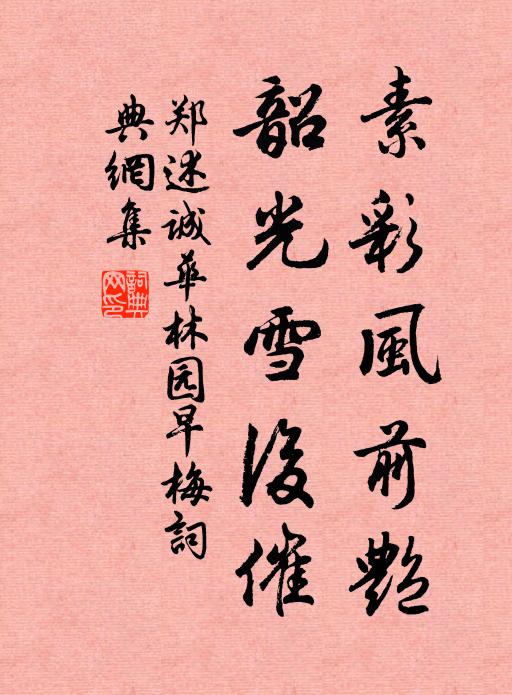 素彩風前艷
韶光雪後催
郑述诚華林园早梅詞
典網集
詞典網印